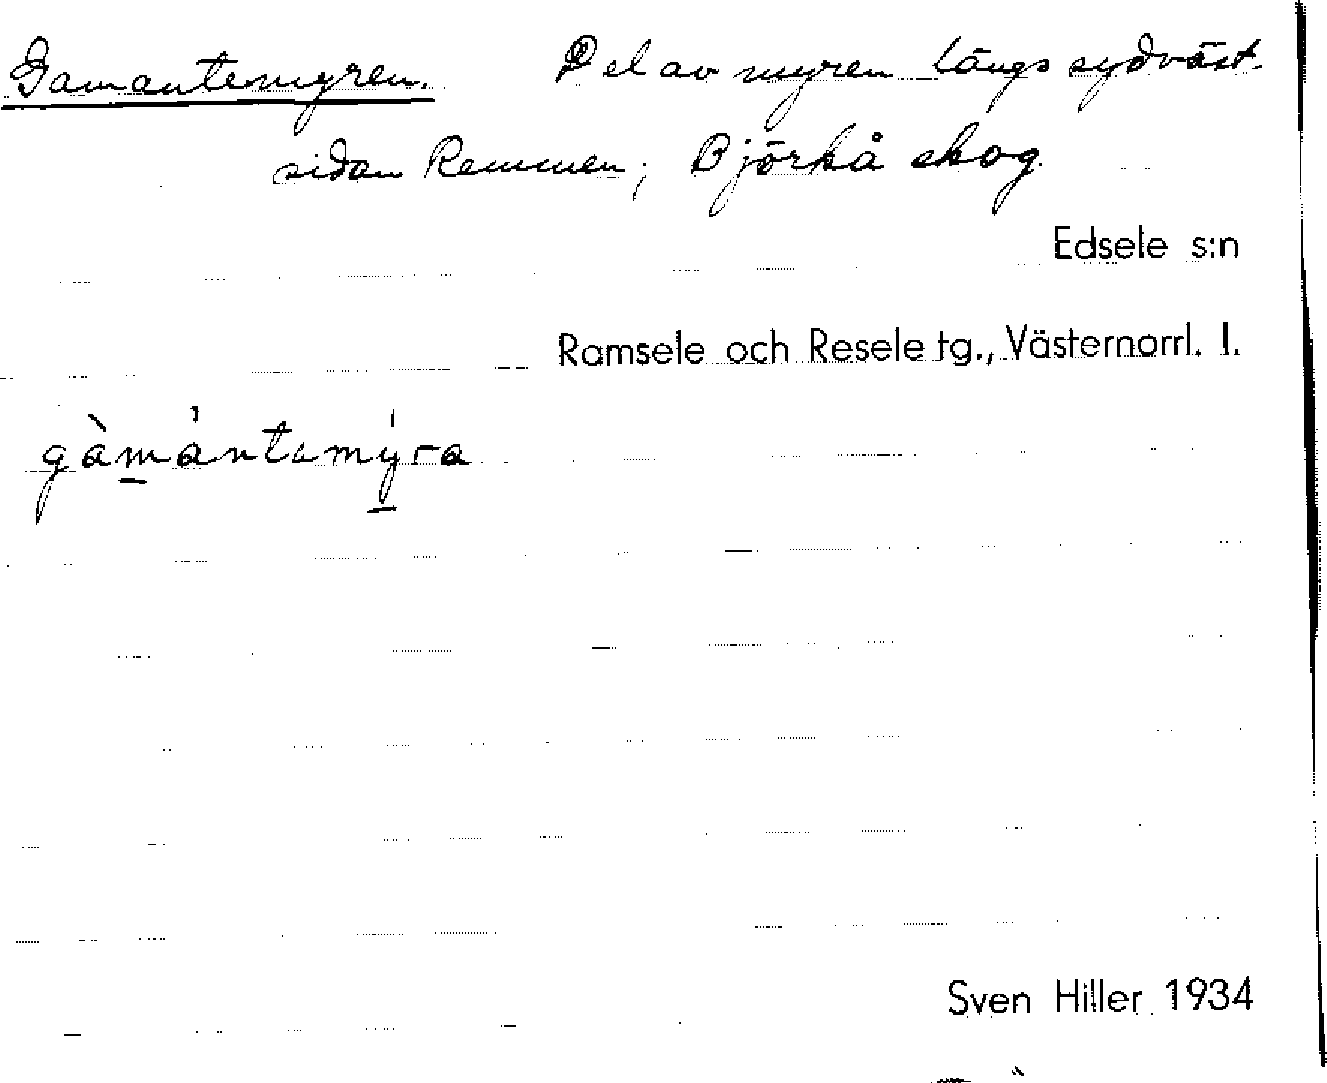 Gamantemyren. Del av myren längs sydväst-
sidan Remmen; Björkå skog.
Edsele s:n
Ramsele och Resele tg., Västernorrl. l.
gàmántamýra
Sven Hiller 1934